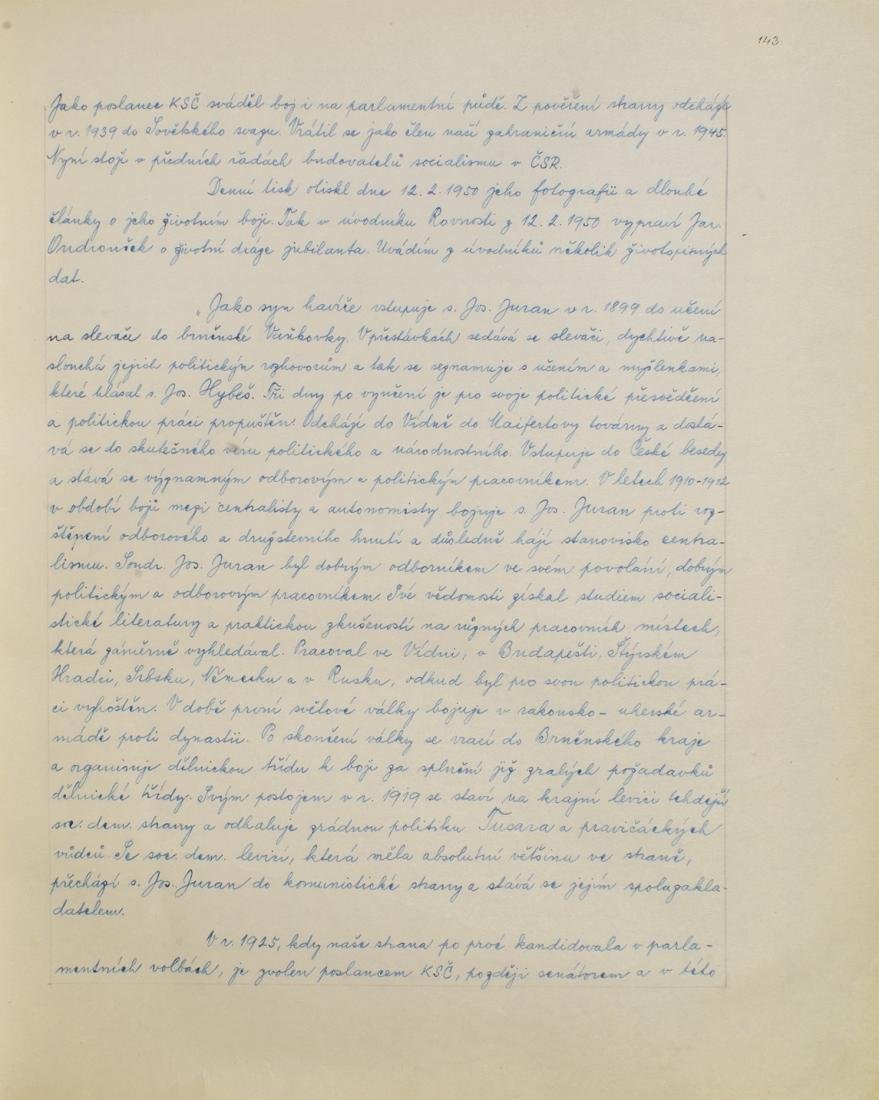 143
Jako poslanec KSČ sváděl boj i na parlamentní půdě. Z pověření strany odchází
v r. 1939 do Sovětského svazu. Vrátil se jako člen naší zahraniční armády v r. 1945.
Nyní stojí v předních řadách budovatelů socialismu v ČSR.
Denní tisk otiskl dne 12. 2. 1950 jeho fotografii a dlouhé
články o jeho životním boji. Tak v úvodníku Rovnosti z 12. 2. 1950 vypraví Jar.
Ondroušek o životní dráze jubilanta. Uvádím z úvodníků několik životopisných
dat.
„Jako syn havíře vstupuje s. Jos. Juran v r. 1899 do učení
na slevače do brněnské Vaňkovky. V přestávkách sedává se slevači, dychtivě na-
slouchá jejich politickým rozhovorům a tak se seznamuje s učením a myšlenkami,
které hlásal s. Jos. Hybeš. Tři dny po vyučení je pro svoje politické přesvědčení
a politickou práci propuštěn. Odchází do Vídně do Maifertovy továrny a dostá-
vá se do skutečného víru politického a národnostního. Vstupuje do České besedy
a stává se významným odborovým a politickým pracovníkem. V letech 1910-1912
v období bojů mezi centralisty a autonomisty bojuje s. Jos. Juran proti roz-
štěpení odborového a družstevního hnutí a důsledně hájí stanovisko centra-
lismu. Soudr. Jos. Juran byl dobrým odborníkem ve svém povolání, dobrým
politickým a odborovým pracovníkem. Své vědomosti získal studiem sociali-
stické literatury a praktickou zkušeností na různých pracovních místech,
která záměrně vyhledával. Pracoval ve Vídni, v Budapešti, Štýrském
Hradci, Srbsku, Německu a v Rusku, odkud byl pro svou politickou prá-
ci vyhoštěn. V době první světové války bojuje v rakousko-uherské ar-
mádě proti dynastii. Po skončení války se vrací do Brněnského kraje
a organisuje dělnickou třídu k boji za splnění již zralých požadavků
dělnické třídy. Svým postojem v r. 1919 se staví na krajní levici tehdejší
soc. dem. strany a odhaluje zrádnou politiku Tusara a pravičáckých
vůdců. Se soc. dem. levicí, která měla absolutní většinu ve straně,
přechází s. Jos. Juran do komunistické strany a stává se jejím spoluzakla-
datelem.
V r. 1925, kdy naše strana po prvé kandidovala v parla-
mentních volbách, je zvolen poslancem KSČ, později senátorem a v této